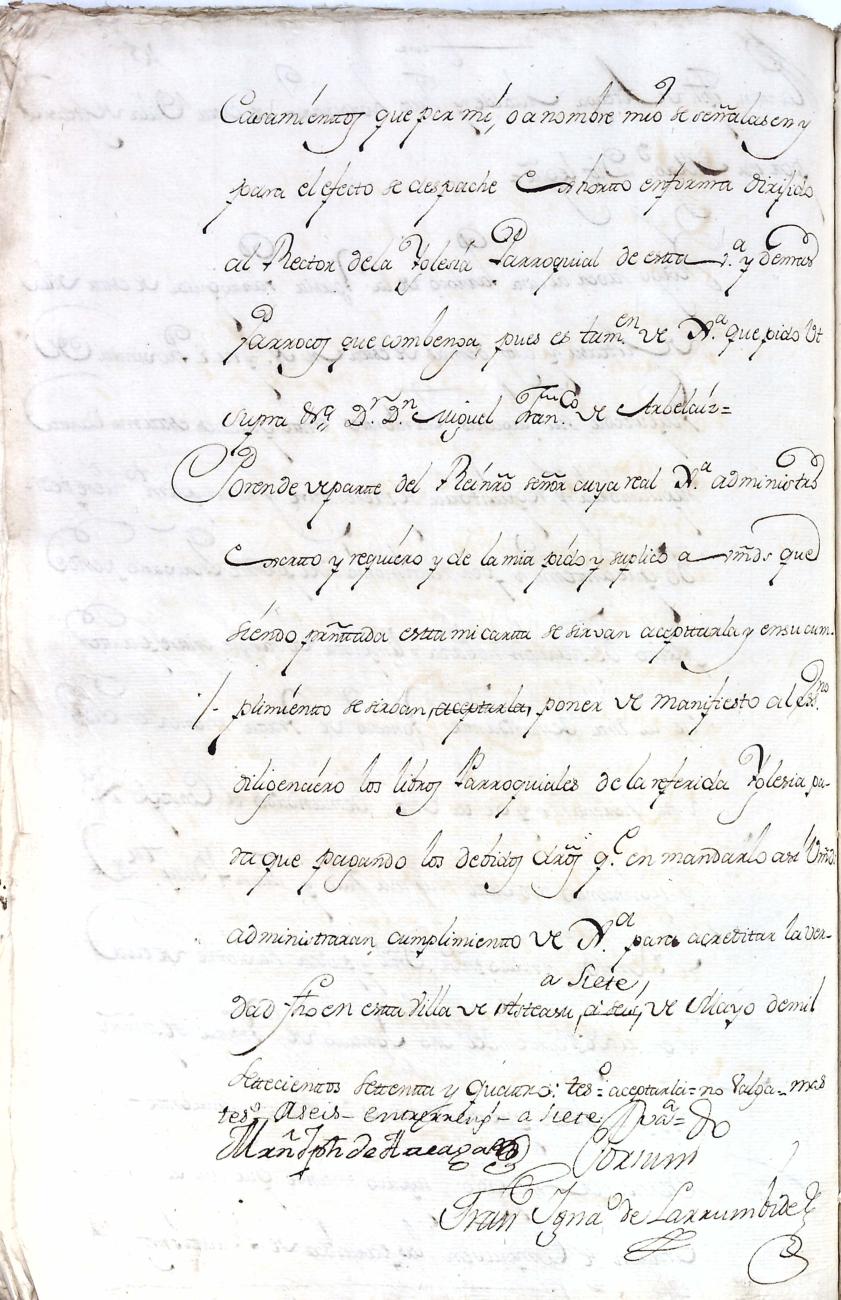 Casamientos que por mi, o a nombre mio se señalasen y
para el efecto se despache Exhorto en forma dirijido
al Rector de la Yglesia Parroquial de esta v.ª y demas
Parrocos que combenga, pues es tam.en de X.ª que pido Vt
supra &ª D.r D.n Miguel Fran.co de Arbelaiz=
Porende de parte del Rei nro señor cuya real X.ª administro
Exorto y requiero y de la mia pido y suplico a vm̃ds que
siendo presñtada esta mi carta se sirvan aceptarla y en su cum-
plimiento se sirban, aceptarla, poner de manifiesto al ess.no
diligenciero los libros Parroquiales de la referida Yglesia pa-
ra que pagando los debidos dr̃os q.e en mandarlo asi Vm̃ds
administraran cumplimiento de X.ª para acreditar la ver-
a siete,
dad fho en esta Villa de, a seis, de Mayo de mil
setecientos settenta y quatro: tes.º= aceptarla=no Valga- mas
tes.º Aseis- entrerreng.s- a siete,
Mrñ Jph de
Por su m
Fran Ygna.º de Larrumbide